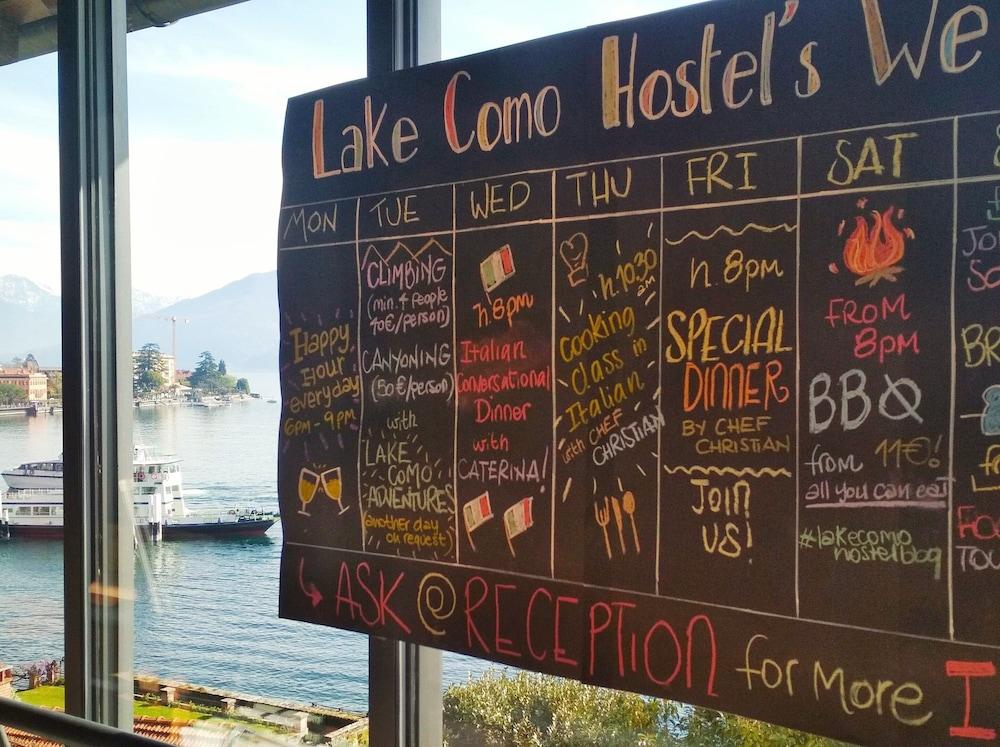 Lake Como Hostel's We
MON
Happy
Hour
everyday
6pm - 9pm
TUE
CLIMBING
(min. 4 people
40€/person)
CANYONING
(50€/person)
with
LAKE
COMO
ADVENTURES
(another day
on request)
WED
h 8pm
Italian
Conversational
Dinner
with
CATERINA!
THU
h. 10.30
am
Cooking
Class in
Italian
with CHEF
CHRISTIAN
FRI
h. 8pm
SPECIAL
DINNER
BY CHEF
CHRISTIAN
JOIN
US!
SAT
FROM
8pm
BBQ
from 11€!
all you can eat
#lakecomo
hostelbbq
BR
TOU
ASK @ RECEPTION for More I